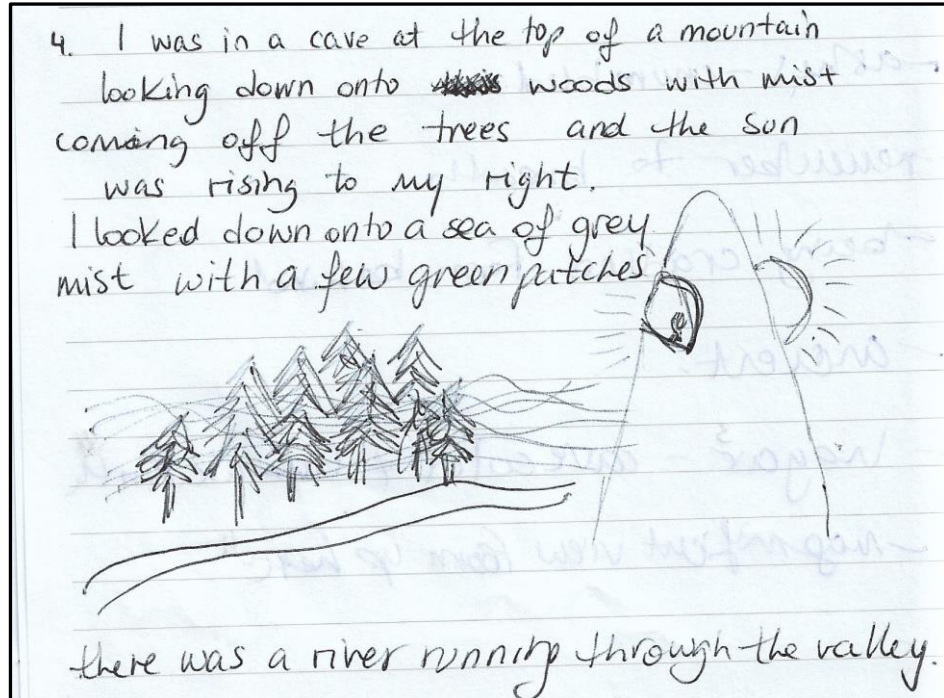 4. I was in a cave at the top of a mountain
looking down onto woods with mist
coming off the trees and the sun
was rising to my right.
I looked down onto a sea of grey
mist with a few green patches
there was a river running through the valley.